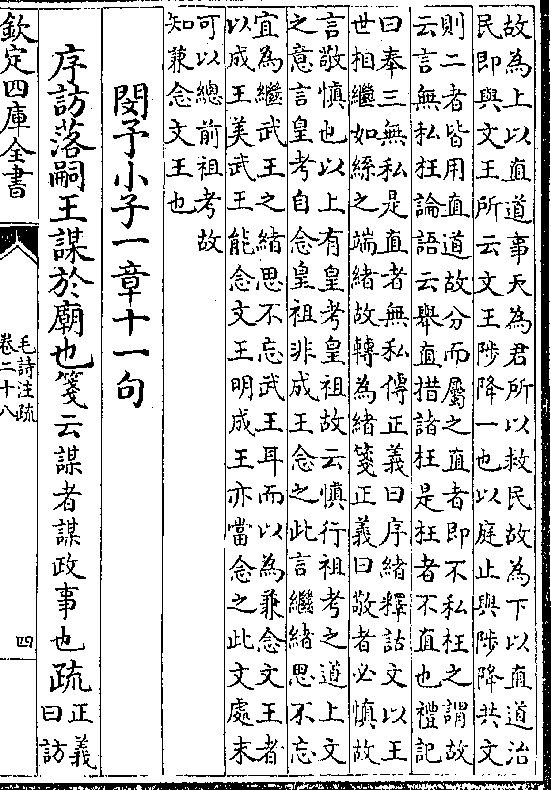 故為上以直道事天為君所以救民故為下以直道治
民即與文王所云文王陟降一也以庭止與陟降共文
則二者皆用直道故分而屬之直者即不私枉之謂故
云言無私枉論語云舉直措諸枉是枉者不直也禮記
曰奉三無私是直者無私傳正義曰序緒釋詁文以王
世相繼如絲之端緒故轉為緒箋正義曰敬者必慎故
言敬慎也以上有皇考皇祖故云慎行祖考之道上文
之意言皇考自念皇祖非成王念之此言繼緒思不忘
宜為繼武王之緒思不忘武王耳而以為兼念文王者
以成王美武王能念文王明成王亦當念之此文處末
可以總前祖考故
知兼念文王也
閔予小子一章十一句
序訪落嗣王謀於廟也箋云謀者謀政事也疏正義
曰訪
欽定四庫全書
毛詩注疏
卷二十八
四